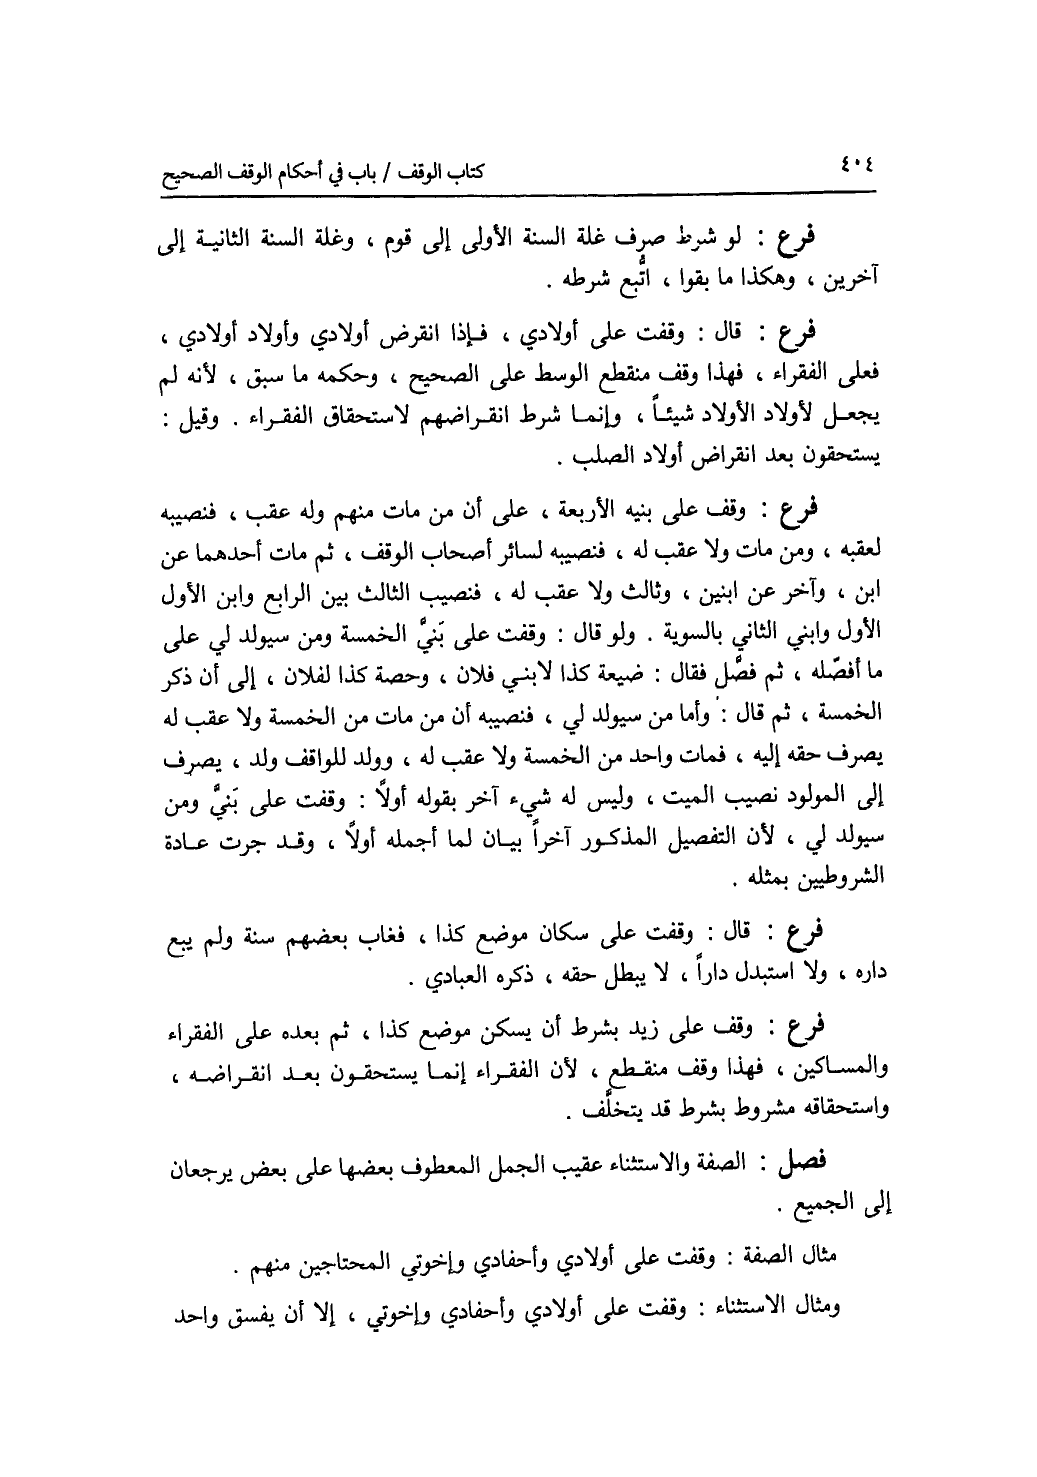 ٤٠٤
كتاب الوقف / باب في أحكام الوقف الصحيح
فرع : لو شرط صرف غلة السنة الأولى إلى قوم ، وغلة السنة الثانية إلى
آخرين ، وهكذا ما بقوا ، اتُّبع شرطه .
فرع : قال : وقفت على أولادي ، فإذا انقرض أولادي وأولاد أولادي ،
فعلى الفقراء ، فهذا وقف منقطع الوسط على الصحيح ، وحكمه ما سبق ، لأنه لم
يجعل لأولاد الأولاد شيئاً ، وإنما شرط انقراضهم لاستحقاق الفقراء . وقيل :
يستحقون بعد انقراض أولاد الصلب .
فرع : وقف على بنيه الأربعة ، على أن من مات منهم وله عقب ، فنصيبه
لعقبه ، ومن مات ولا عقب له ، فنصيبه لسائر أصحاب الوقف ، ثم مات أحدهما عن
ابن ، وآخر عن ابنين ، وثالث ولا عقب له ، فنصيب الثالث بين الرابع وابن الأول
الأول وابني الثاني بالسوية . ولو قال : وقفت على بَنيَّ الخمسة ومن سيولد لي على
ما أفصّله ، ثم فصَّل فقال : ضيعة كذا لابني فلان ، وحصة كذا لفلان ، إلى أن ذكر
الخمسة ، ثم قال : وأما من سيولد لي ، فنصيبه أن من مات من الخمسة ولا عقب له
يصرف حقه إليه ، فمات واحد من الخمسة ولا عقب له ، وولد للواقف ولد ، يصرف
إلى المولود نصيب الميت ، وليس له شيء آخر بقوله أولاً : وقفت على بَنيَّ ومن
سيولد لي ، لأن التفصيل المذكور آخراً بيان لما أجمله أولاً ، وقد جرت عادة
الشروطيين بمثله .
فرع : قال : وقفت على سكان موضع كذا ، فغاب بعضهم سنة ولم يبع
داره ، ولا استبدل داراً ، لا يبطل حقه ، ذكره العبادي .
فرع : وقف على زيد بشرط أن يسكن موضع كذا ، ثم بعده على الفقراء
والمساكين ، فهذا وقف منقطع ، لأن الفقراء إنما يستحقون بعد انقراضه ،
واستحقاقه مشروط بشرط قد يتخلَّف .
فصل : الصفة والاستثناء عقيب الجمل المعطوف بعضها على بعض يرجعان
إلى الجميع .
مثال الصفة : وقفت على أولادي وأحفادي وإخوتي المحتاجين منهم .
ومثال الاستثناء : وقفت على أولادي وأحفادي وإخوتي ، إلا أن يفسق واحد